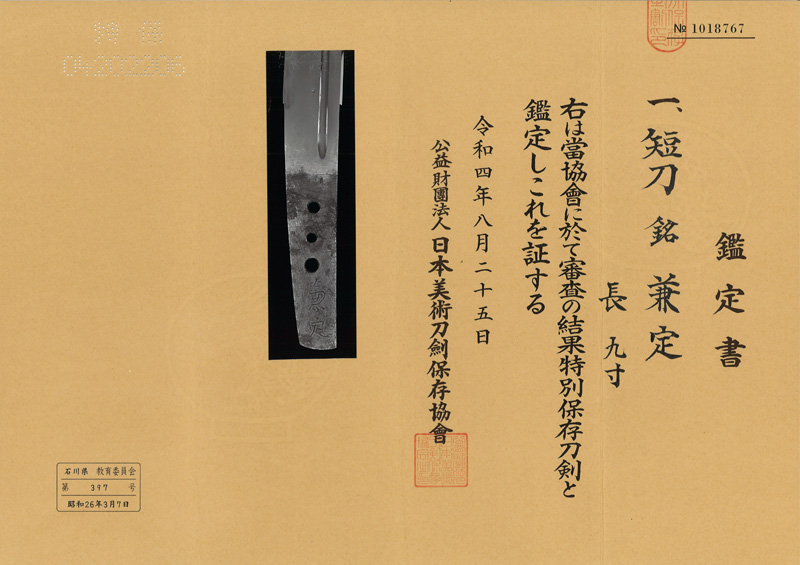 № 1018767
鑑定書
一、短刀 銘 兼定
長 九寸
右は當協會に於て審査の結果特別保存刀剣と
鑑定しこれを証する
令和四年八月二十五日
公益財團法人日本美術刀劍保存協會
兼定
特 保
04202206
石川県 教育委員会
第 397 号
昭和26年3月7日